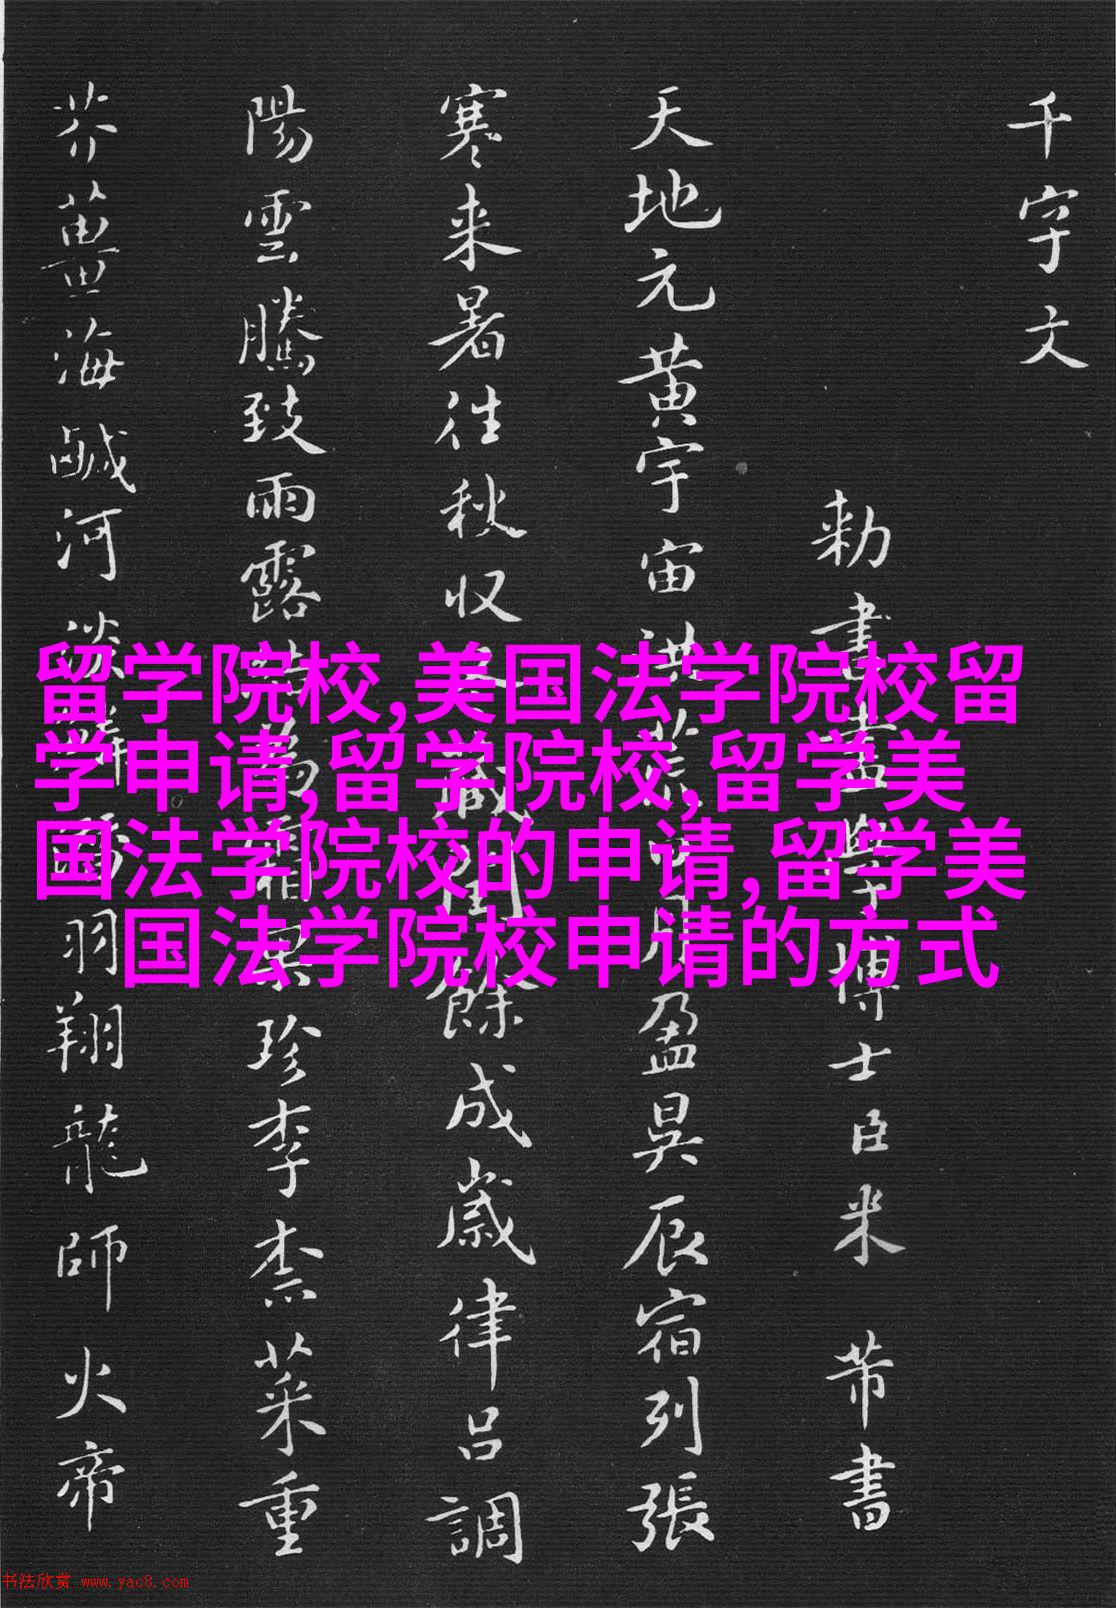 千字文
勅書畫學博士臣米芾書
天地元黄宇宙洪荒日月盈昃辰宿列張
寒来暑往秋収冬藏閏餘成歲律吕調
陽雲騰致雨露結為霜果珍李柰菜重
芥薑海鹹河淡鱗潛羽翔龍師火帝
留学院校,美国法学院校留
学申请,留学院校,留学美
国法学院校的申请,留学美
国法学院校申请的方式
书法欣赏 www.yac8.com